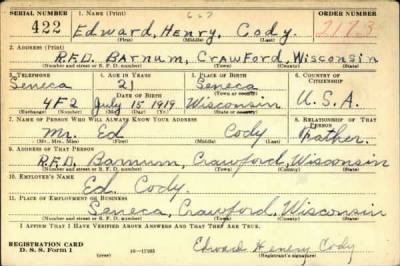 SERIAL NUMBER 1. NAME (Print) ORDER NUMBER
422 Edward, Henry, Cody. 2193
(First) (Middle) (Last)
2. ADDRESS (Print)
R.F.D. Barnum, Crawford, Wisconsin
(Number and street or R. F. D. number) (Town) (County) (State)
3. TELEPHONE 4. AGE IN YEARS 5. PLACE OF BIRTH 6. COUNTRY OF CITIZENSHIP
Seneca 21 Seneca
DATE OF BIRTH (Town or county)
4F2 July 15 1919 Wisconsin U.S.A.
(Exchange) (Number) (Mo.) (Day) (Yr.) (State or country)
7. NAME OF PERSON WHO WILL ALWAYS KNOW YOUR ADDRESS 8. RELATIONSHIP OF THAT PERSON
Mr. Ed Cody Father.
(Mr., Mrs., Miss) (First) (Middle) (Last)
9. ADDRESS OF THAT PERSON
R.F.D. Barnum, Crawford, Wisconsin
(Number and street or R. F. D. number) (Town) (County) (State)
10. EMPLOYER'S NAME
Ed. Cody.
11. PLACE OF EMPLOYMENT OR BUSINESS
Seneca, Crawford, Wisconsin
(Number and street or R. F. D. number) (Town) (County) (State)
I AFFIRM THAT I HAVE VERIFIED ABOVE ANSWERS AND THAT THEY ARE TRUE.
REGISTRATION CARD
D. S. S. Form 1 Edward Henery Cody
(Registrant's signature)